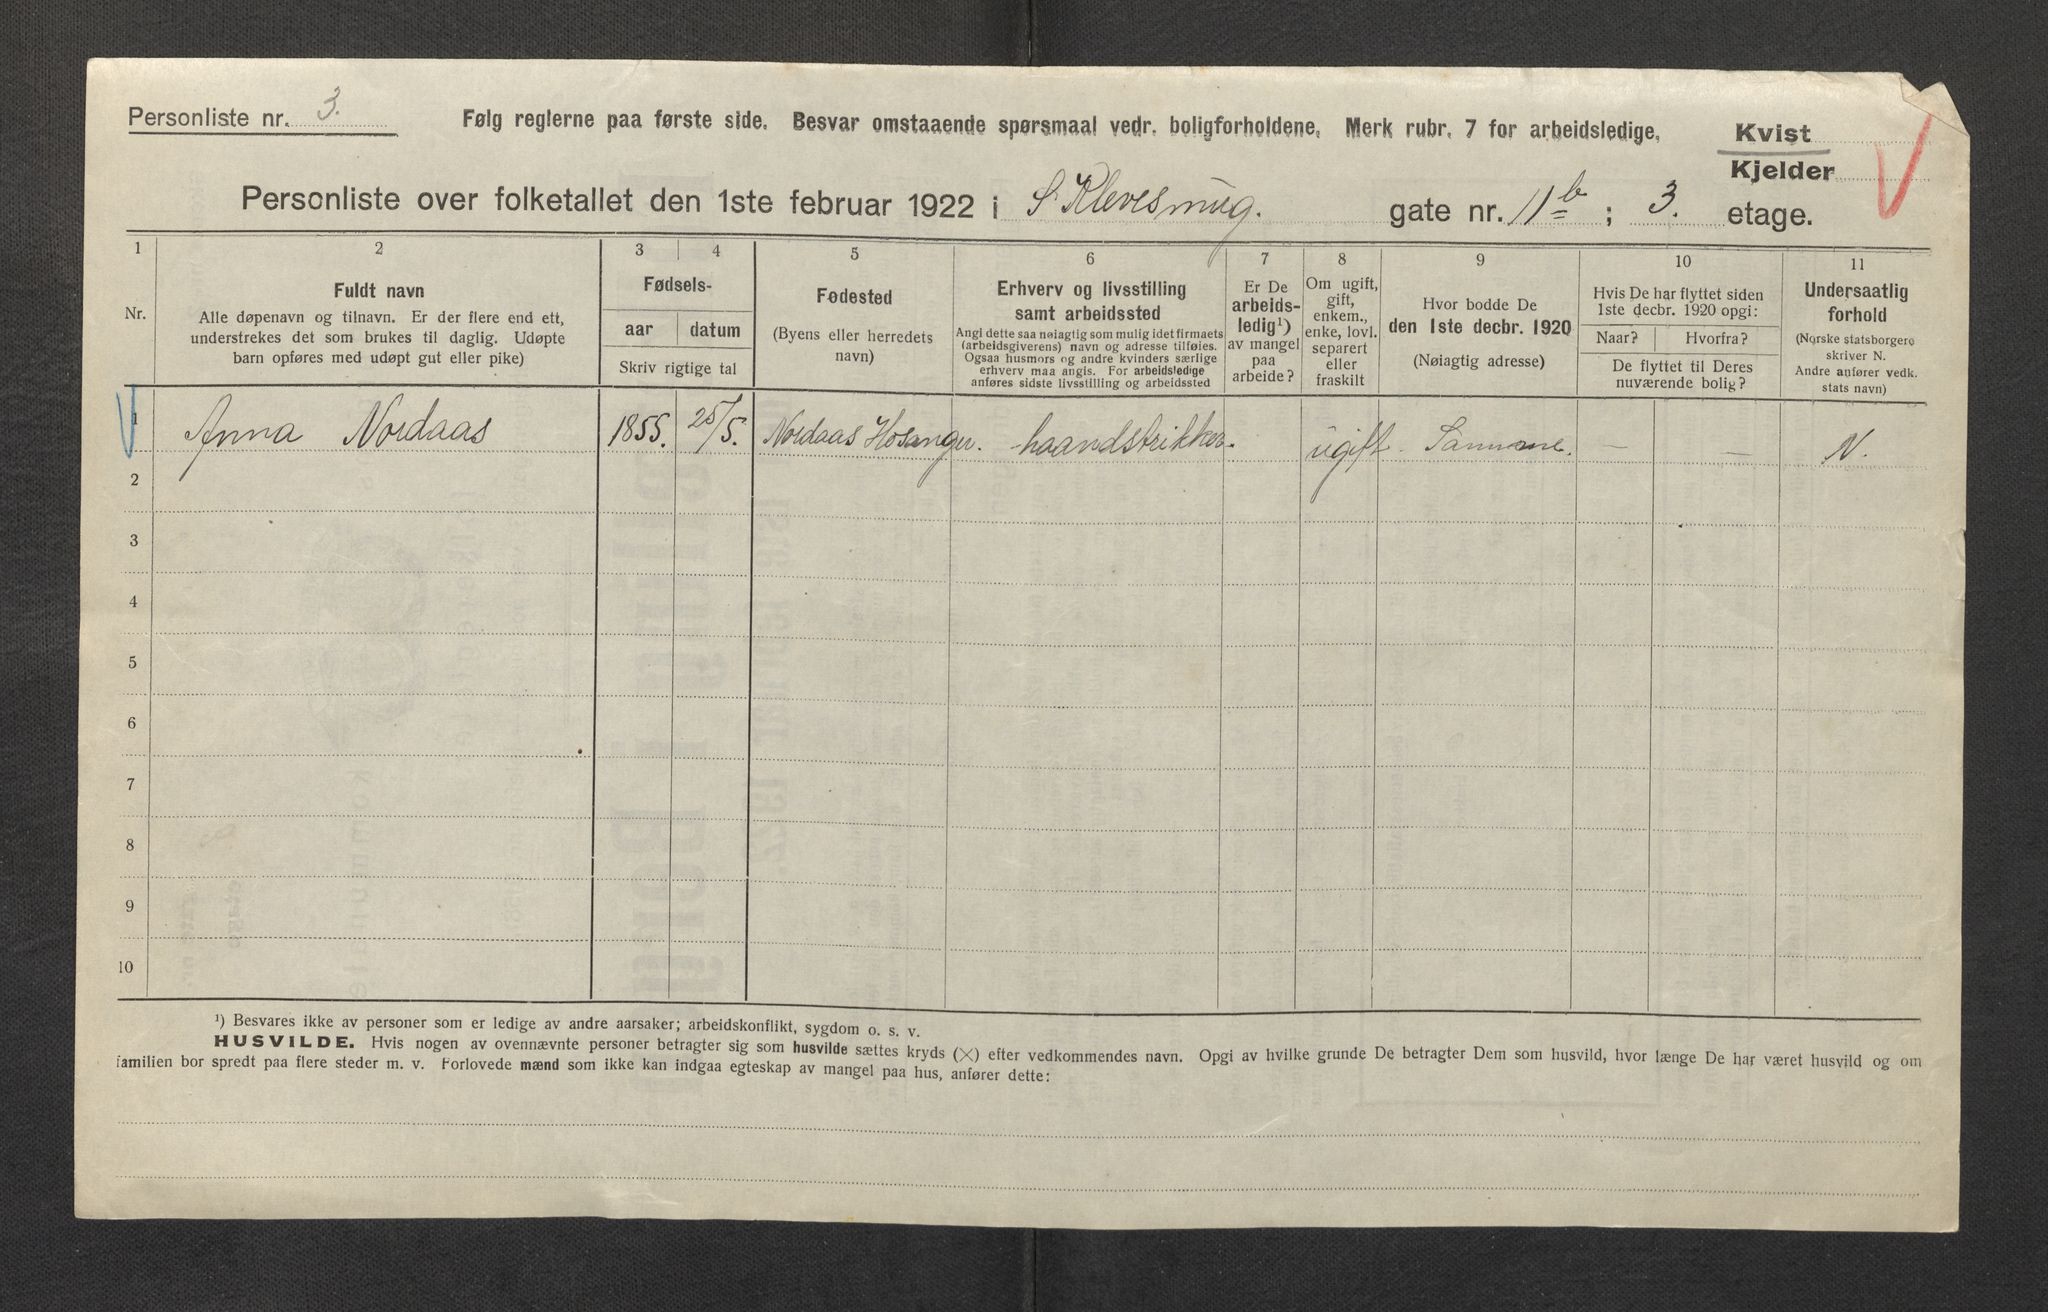 Personliste nr. 3.
Følg reglerne paa første side. Besvar omstaaende spørsmaal vedr. boligforholdene. Merk rubr. 7 for arbeidsledige.
Kvist
Kjelder
Personliste over folketallet den 1ste februar 1922 i S. Klevesmug. gate nr. 11b; 3. etage.
1 2 3 4 5 6 7 8 9 10 11
Nr.
Fuldt navn
Alle døpenavn og tilnavn. Er der flere end ett,
understrekes det som brukes til daglig. Udøpte
barn opføres med udøpt gut eller pike)
Fødsels-
aar datum
Skriv rigtige tal
Fødested
(Byens eller herredets
navn)
Erhverv og livsstilling
samt arbeidssted
Angi dette saa nøiagtig som mulig idet firmaets
(arbeidsgiverens) navn og adresse tilføies.
Ogsaa husmors og andre kvinders særlige
erhverv maa angis. For arbeidsledige
anføres sidste livsstilling og arbeidssted
Er De
arbeids-
ledig¹)
av mangel
paa
arbeide?
Om ugift,
gift,
enkem.,
enke, lovl.
separert
eller
fraskilt
Hvor bodde De
den 1ste decbr. 1920
(Nøiagtig adresse)
Hvis De har flyttet siden
1ste decbr. 1920 opgi:
Naar? Hvorfra?
De flyttet til Deres
nuværende bolig?
Undersaatlig
forhold
(Norske statsborgere
skriver N.
Andre anfører vedk.
stats navn)
1 Anna Nordaas 1855. 25/5. Nordaas Hosanger. haandstrikker. ugift. Samme. — — N.
2
3
4
5
6
7
8
9
10
¹) Besvares ikke av personer som er ledige av andre aarsaker; arbeidskonflikt, sygdom o. s. v.
HUSVILDE. Hvis nogen av ovennævnte personer betragter sig som husvilde sættes kryds (×) efter vedkommendes navn. Opgi av hvilke grunde De betragter Dem som husvild, hvor længe De har været husvild og om
familien bor spredt paa flere steder m. v. Forlovede mænd som ikke kan indgaa egteskap av mangel paa hus, anfører dette: